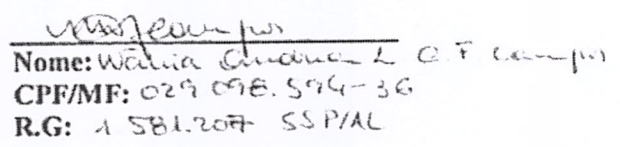 Nome: Wália Andréa L C. F. Campos
CPF/MF: 029 098.594-36
R.G: 1 581.207 SSP/AL